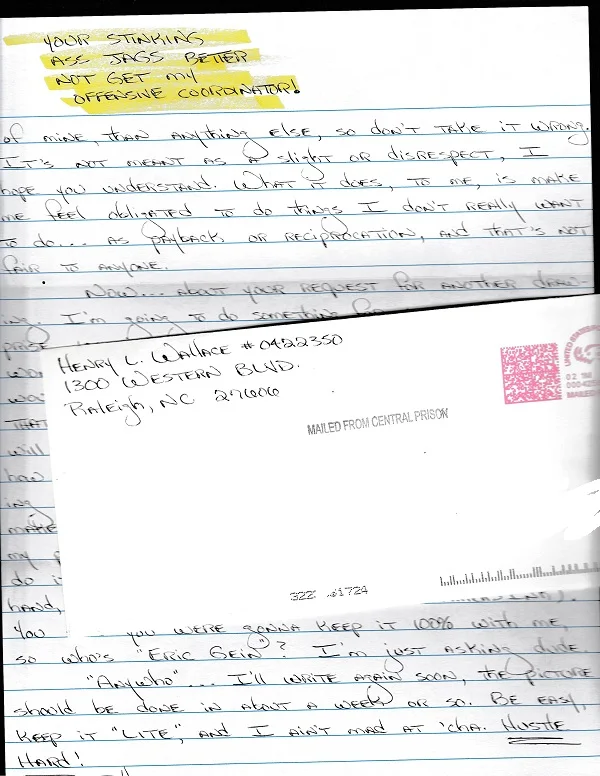 YOUR STINKING
ASS JAGS BETTER
NOT GET MY
OFFENSIVE COORDINATOR!
of mine, than anything else, so don't take it wrong.
It's not meant as a slight or disrespect, I
hope you understand. What it does, to me, is make
me feel obligated to do things I don't really want
to do... as payback or reciprocation, and that's not
fair to anyone.
Now... about your request for another draw-
ing. I'm going to do something for
Henry L. Wallace #0422350
1300 Western Blvd.
Raleigh, NC 27606
MAILED FROM CENTRAL PRISON
UNITED STATES
02 1M
MAILED
that
will
how
ing
make
my
do it
hand,
you
you were gonna keep it 100% with me,
so who's "Eric Gein"? I'm just asking dude.
"Anywho"... I'll write again soon, the picture
should be done in about a week or so. Be easy,
keep it "LITE", and I ain't mad at 'cha. Hustle
Hard!